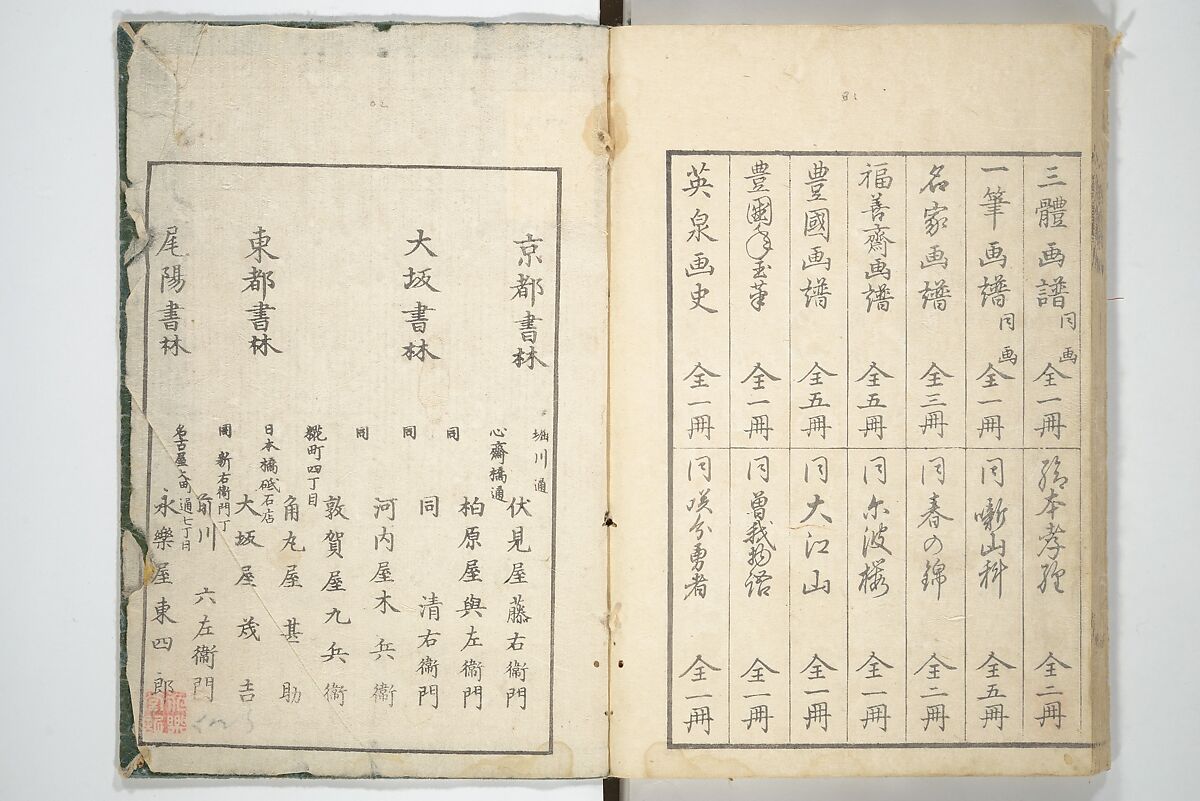 三體画譜 同画 全一冊
一筆画譜 同画 全一冊
名家画譜 全三冊
福善齋画譜 全五冊
豊國画譜 全五冊
豊國年玉筆 全一冊
英泉画史 全一冊
絵本孝経 全二冊
同 噺山科 全五冊
同 春の錦 全二冊
同 尓波桜 全一冊
同 大江山 全一冊
同 曽我物語 全一冊
同 英分勇者 全一冊
京都書林 堀川通 伏見屋藤右衞門
大坂書林 心齋橋通 柏原屋與左衞門
同 同 清右衞門
同 河内屋木兵衞
同 敦賀屋九兵衞
東都書林 糀町四丁目 角丸屋甚助
日本橋砥石店 大坂屋茂吉
同 新右衞門丁 前川六左衞門
尾陽書林 名古屋本町通七丁目 永樂屋東四郎